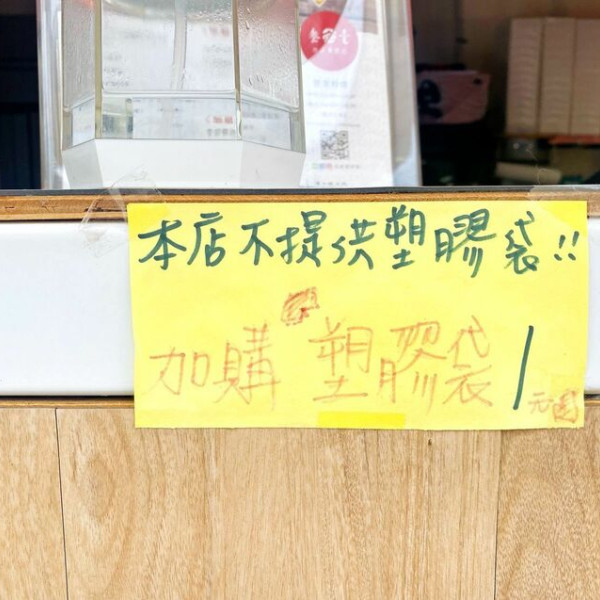 本店不提供塑膠袋!!
加購 塑膠袋1元